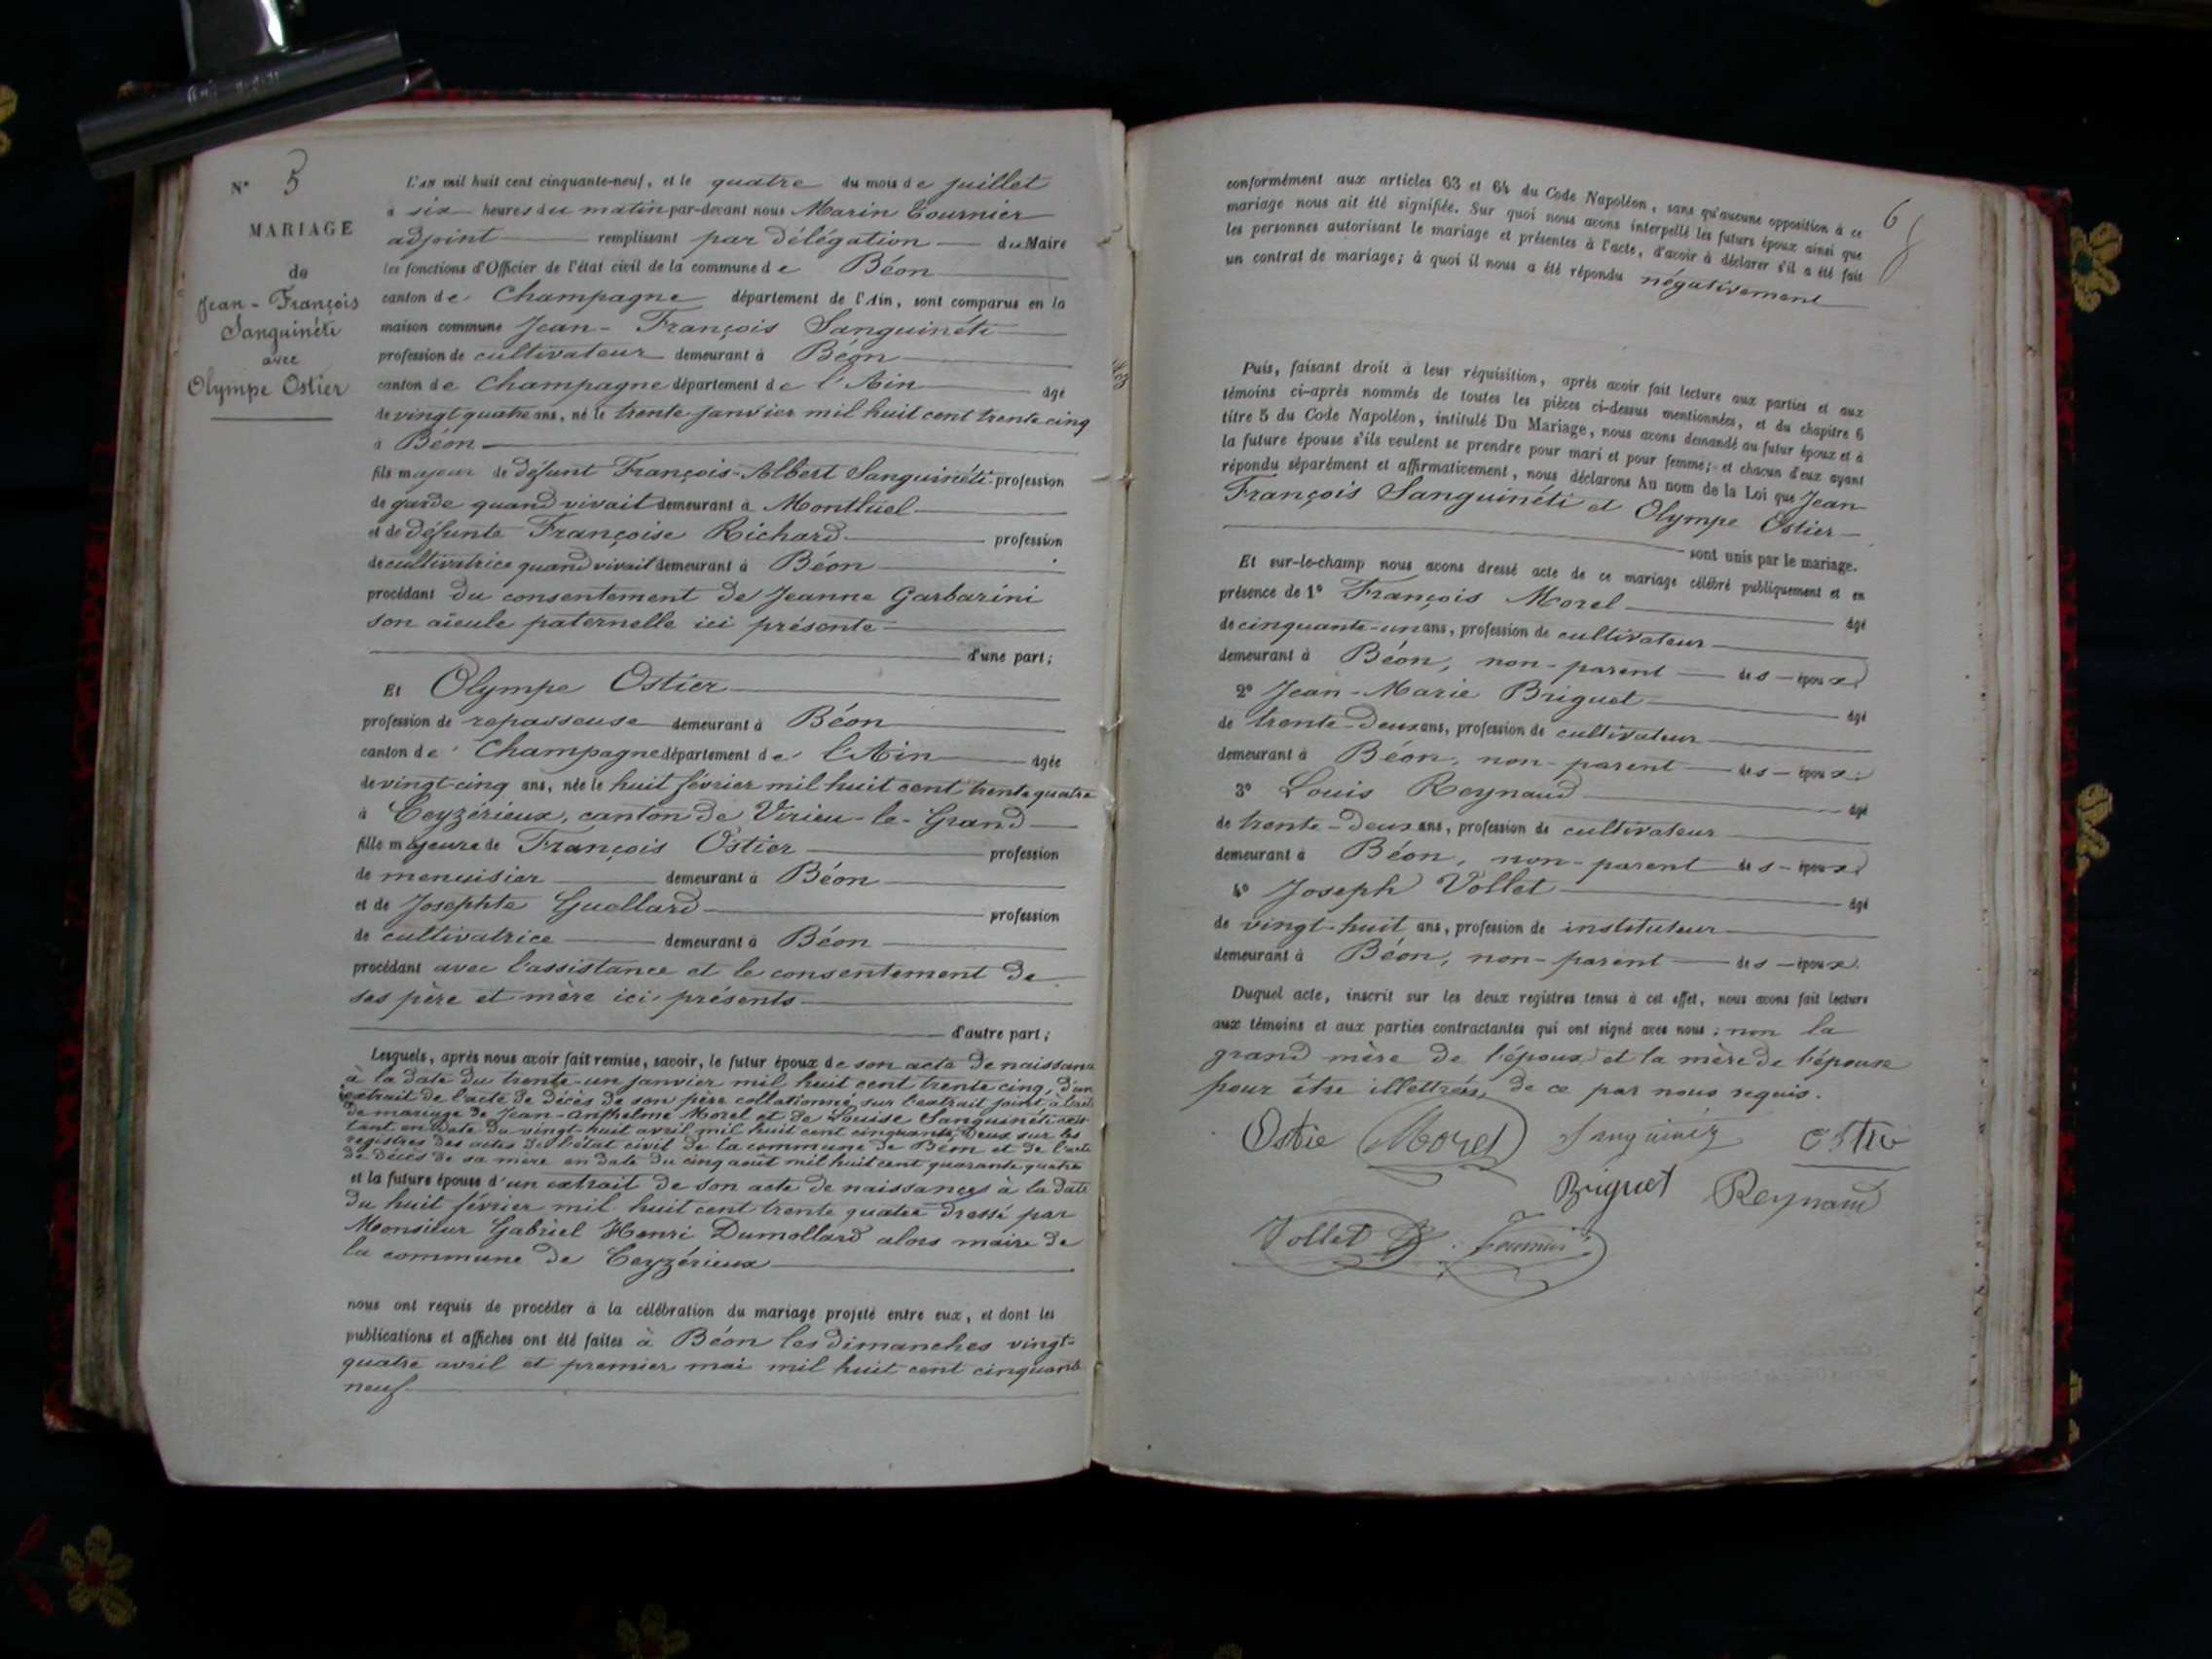 N° 5
MARIAGE
de
Jean-François
Sanguinéti
avec
Olympe Ostier
L'an mil huit cent cinquante-neuf, et le quatre du mois de juillet
à six heures du matin par-devant nous Marin Tournier
adjoint remplissant par délégation du Maire
les fonctions d'Officier de l'état civil de la commune de Béon
canton de Champagne département de l'Ain, sont comparus en la
maison commune Jean-François Sanguinéti
profession de cultivateur demeurant à Béon
canton de Champagne département de l'Ain âgé
de vingt quatre ans, né le trente janvier mil huit cent trente cinq
à Béon
fils majeur de défunt François-Albert Sanguinéti profession
de garde quand vivait demeurant à Montluel
et de défunte Françoise Richard profession
de cultivatrice quand vivait demeurant à Béon
procédant du consentement de Jeanne Garbarini
son aïeule paternelle ici présente
d'une part;
Et Olympe Ostier
profession de repasseuse demeurant à Béon
canton de Champagne département de l'Ain âgée
de vingt-cinq ans, née le huit février mil huit cent trente quatre
à Ceyzérieux, canton de Virieu-le-Grand
fille majeure de François Ostier profession
de menuisier demeurant à Béon
et de Josephte Guellard profession
de cultivatrice demeurant à Béon
procédant avec l'assistance et le consentement de
ses père et mère ici présents
d'autre part;
Lesquels, après nous avoir fait remise, savoir, le futur époux de son acte de naissance
à la date du trente-un janvier mil huit cent trente cinq, d'un
extrait de l'acte de décès de son père collationné sur l'extrait joint à l'acte
de mariage de Jean-Anthelme Morel et de Louise Sanguinéti
en date du vingt-huit avril mil huit cent cinquante deux sur les
registres des actes de l'état civil de la commune de Béon et de l'acte
de décès de sa mère en date du cinq août mil huit cent quarante quatre
et la future épouse d'un extrait de son acte de naissances à la date
du huit février mil huit cent trente quatre dressé par
Monsieur Gabriel Henri Dumollard alors maire de
la commune de Ceyzérieux
nous ont requis de procéder à la célébration du mariage projeté entre eux, et dont les
publications et affiches ont été faites à Béon les dimanches vingt-
quatre avril et premier mai mil huit cent cinquante
neuf
6
conformément aux articles 63 et 64 du Code Napoléon, sans qu'aucune opposition à ce
mariage nous ait été signifiée. Sur quoi nous avons interpellé les futurs époux ainsi que
les personnes autorisant le mariage et présentes à l'acte, d'avoir à déclarer s'il a été fait
un contrat de mariage; à quoi il nous a été répondu négativement
Puis, faisant droit à leur réquisition, après avoir fait lecture aux parties et aux
témoins ci-après nommés de toutes les pièces ci-dessus mentionnées, et du chapitre 6
titre 5 du Code Napoléon, intitulé Du Mariage, nous avons demandé au futur époux et à
la future épouse s'ils veulent se prendre pour mari et pour femme; et chacun d'eux ayant
répondu séparément et affirmativement, nous déclarons Au nom de la Loi que Jean
François Sanguinéti et Olympe Ostier
sont unis par le mariage.
Et sur-le-champ nous avons dressé acte de ce mariage célébré publiquement et en
présence de 1° François Morel âgé
de cinquante-un ans, profession de cultivateur
demeurant à Béon, non-parent des époux
2° Jean-Marie Briguet âgé
de trente-deux ans, profession de cultivateur
demeurant à Béon, non-parent des époux
3° Louis Reynaud âgé
de trente-deux ans, profession de cultivateur
demeurant à Béon, non-parent des époux
4° Joseph Vollet âgé
de vingt-huit ans, profession de instituteur
demeurant à Béon, non-parent des époux.
Duquel acte, inscrit sur les deux registres tenus à cet effet, nous avons fait lecture
aux témoins et aux parties contractantes qui ont signé avec nous; non la
grand mère de l'époux et la mère de l'épouse
pour être illettrées, de ce par nous requis.
Ostie Morel Sanguinéz Ostie
Briguet Reynaud
Vollet Tournier